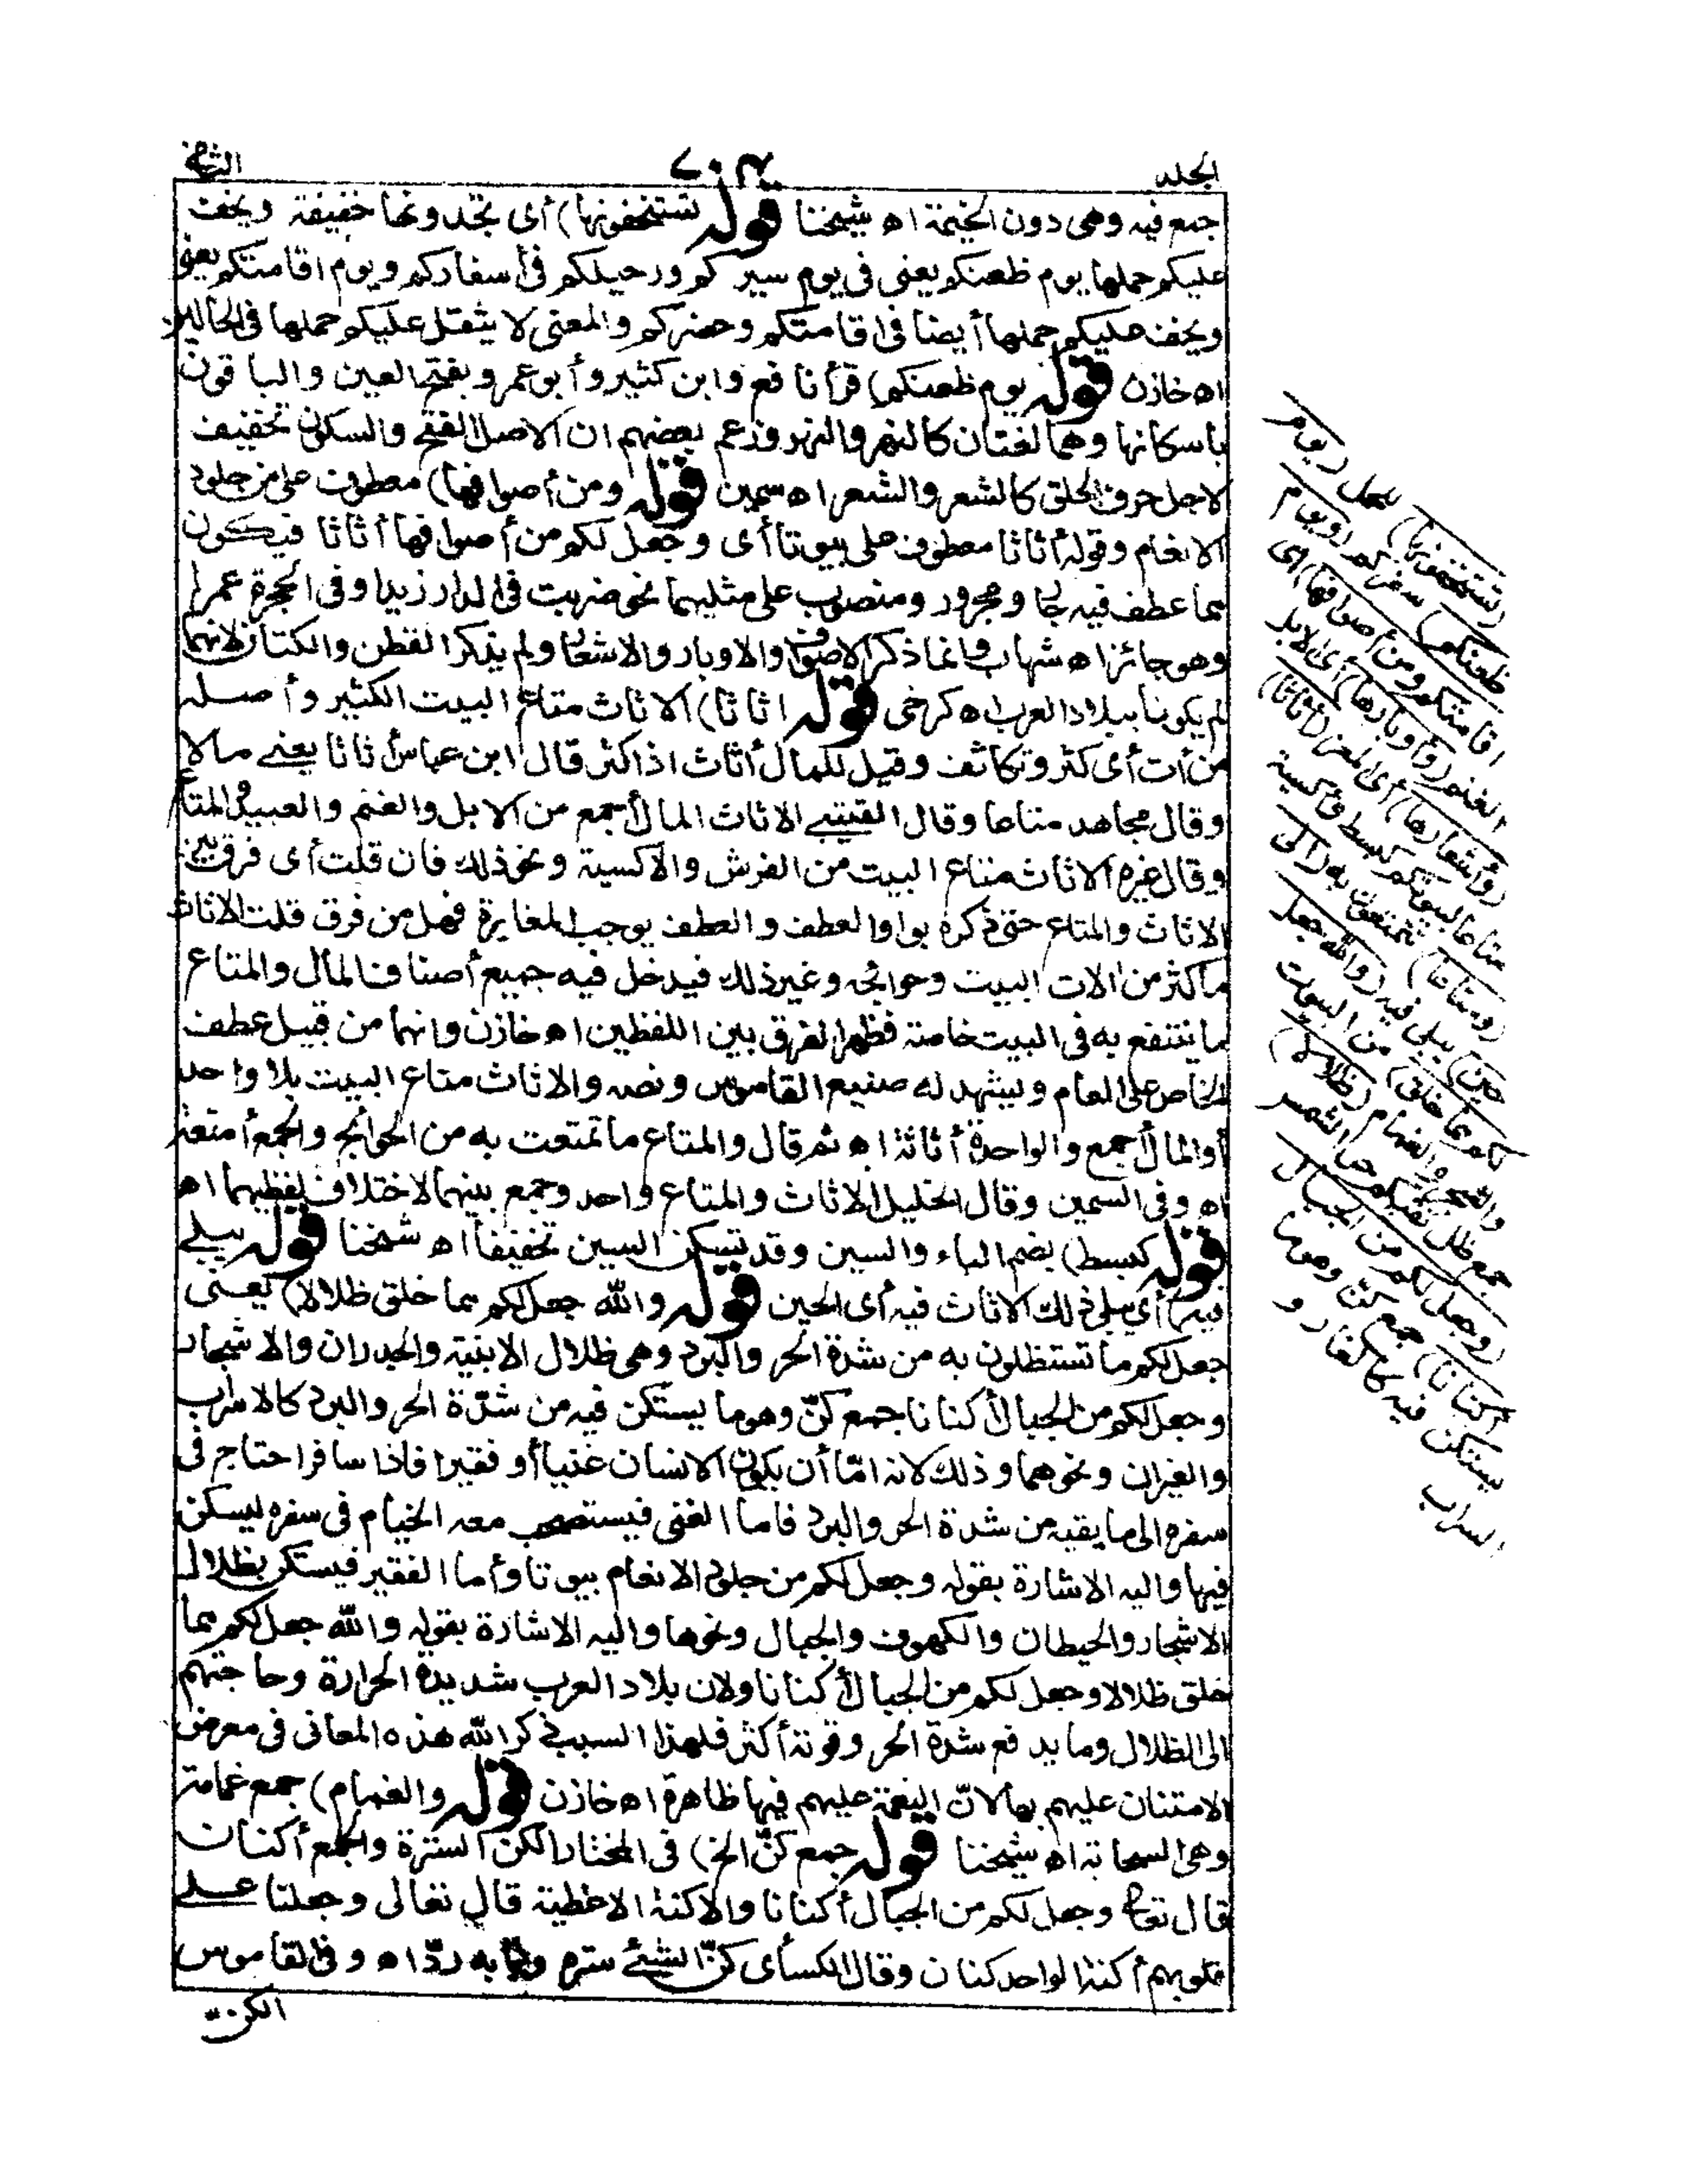 الجلد
٧٠٣
الثانى
جمع فيه وهى دون الخيمة اه شيخنا قوله تستخفونها) أى تجدونها خفيفة ويخف
عليكم حملها يوم ظعنكم يعنى فى يوم سيركم ورحيلكم فى أسفاركم ويوم اقامتكم يعنى
ويخف عليكم حملها أيضا فى اقامتكم وحضركم والمعنى لا يثقل عليكم حملها فى الحالين
اه خازن قوله يوم ظعنكم) قرأ نافع وابن كثير وأبو عمرو بفتح العين والباقون
باسكانها وهما لغتان كالنهر والنهر وزعم بعضهم ان الاصل الفتح والسكون تخفيف
لاجل حرف الحلق كالشعر والشعر اه سمين قوله ومن أصوافها) معطوف على من جلود
الانعام وقوله أثاثا معطوف على بيوتا أى وجعل لكم من أصوافها أثاثا فيكون
مما عطف فيه جار ومجرور ومنصوب على مثليهما نحو ضربت فى الدار زيدا وفى الحجرة عمرا
وهو جائز اه شهاب وانما ذكر الاصواف والاوبار والاشعار ولم يذكر القطن والكتان لانهما
لم يكونا ببلاد العرب اه كرخى قوله اثاثا) الاثاث متاع البيت الكثير وأصله
من أث أى كثر وتكاثف وقيل للمال أثاث اذا كثر قال ابن عباس أثاثا يعنى مالا
وقال مجاهد متاعا وقال القتيبى الاثاث المال أجمع من الابل والغنم والعبيد والمتاع
وقال غيره الاثاث متاع البيت من الفرش والاكسية ونحو ذلك فان قلت أى فرق بين
الاثاث والمتاع حتى ذكره بواو العطف والعطف يوجب المغايرة فهل من فرق قلت الاثاث
ما كثر من الات البيت وحوائجه وغير ذلك فيدخل فيه جميع أصناف المال والمتاع
ما ينتفع به فى البيت خاصة فظهر الفرق بين اللفظين اه خازن وانهما من قبيل عطف
الخاص على العام ويشهد له صنيع القاموس ونصه والاثاث متاع البيت بلا واحد
أو المال أجمع والواحدة أثاثة اه ثم قال والمتاع ما تمتعت به من الحوائج والجمع أمتعة
اه وفى السمين وقال الخليل الاثاث والمتاع واحد وجمع بينهما لاختلاف لفظيهما اه
قوله كبسط) بضم الباء والسين وقد تسكن السين تخفيفا اه شيخنا قوله يبلى
فيه) أى يبلى ذلك الاثاث فيه أى الحين قوله والله جعل لكم مما خلق ظلالا) يعنى
جعل لكم ما تستظلون به من شدة الحر والبرد وهى ظلال الابنية والجدران والاشجار
وجعل لكم من الجبال أكنانا جمع كنّ وهو ما يستكن فيه من شدّة الحر والبرد كالاسراب
والغيران ونحوهما وذلك لانه امّا أن يكون الانسان غنيا أو فقيرا فاذا سافر احتاج فى
سفره الى ما يقيه من شدة الحر والبرد فاما الغنى فيستصحب معه الخيام فى سفره ليسكن
فيها واليه الاشارة بقوله وجعل لكم من جلود الانعام بيوتا وأما الفقير فيستكن بظلال
الاشجار والحيطان والكهوف والجبال ونحوها واليه الاشارة بقوله والله جعل لكم مما
خلق ظلالا وجعل لكم من الجبال أكنانا ولان بلاد العرب شديدة الحرارة وحاجتهم
الى الظلال وما يدفع شدة الحر وقوته أكثر فلهذا السبب ذكر الله هذه المعانى فى معرض
الامتنان عليهم بها لانّ النعمة عليهم فيها ظاهرة اه خازن قوله والغمام) جمع غمامة
وهى السحابة اه شيخنا قوله جمع كنّ الخ) فى المختار الكن السترة والجمع أكنان
قال تعالى وجعل لكم من الجبال أكنانا والاكنة الاغطية قال تعالى وجعلنا على
قلوبهم أكنة الواحد كنان وقال الكسائى كنّ الشئ ستره وبابه ردّ اه وفى القاموس
الكن
(تستخفونها) للحمل (يوم
ظعنكم) سفركم (ويوم
اقامتكم ومن أصوافها) أى
الغنم (وأوبارها) أى الابل
(وأشعارها) أى المعز (أثاثا)
متاعا لبيوتكم كبسط وأكسية
(ومتاعا) تتمتعون به (الى
حين) يبلى فيه (والله جعل
لكم مما خلق) من البيوت
والشجر والغمام (ظلالا)
جمع ظل تقيكم حر الشمس
(وجعل لكم من الجبال
أكنانا) جمع كن وهو ما
يستكن فيه كالغار و
السرب